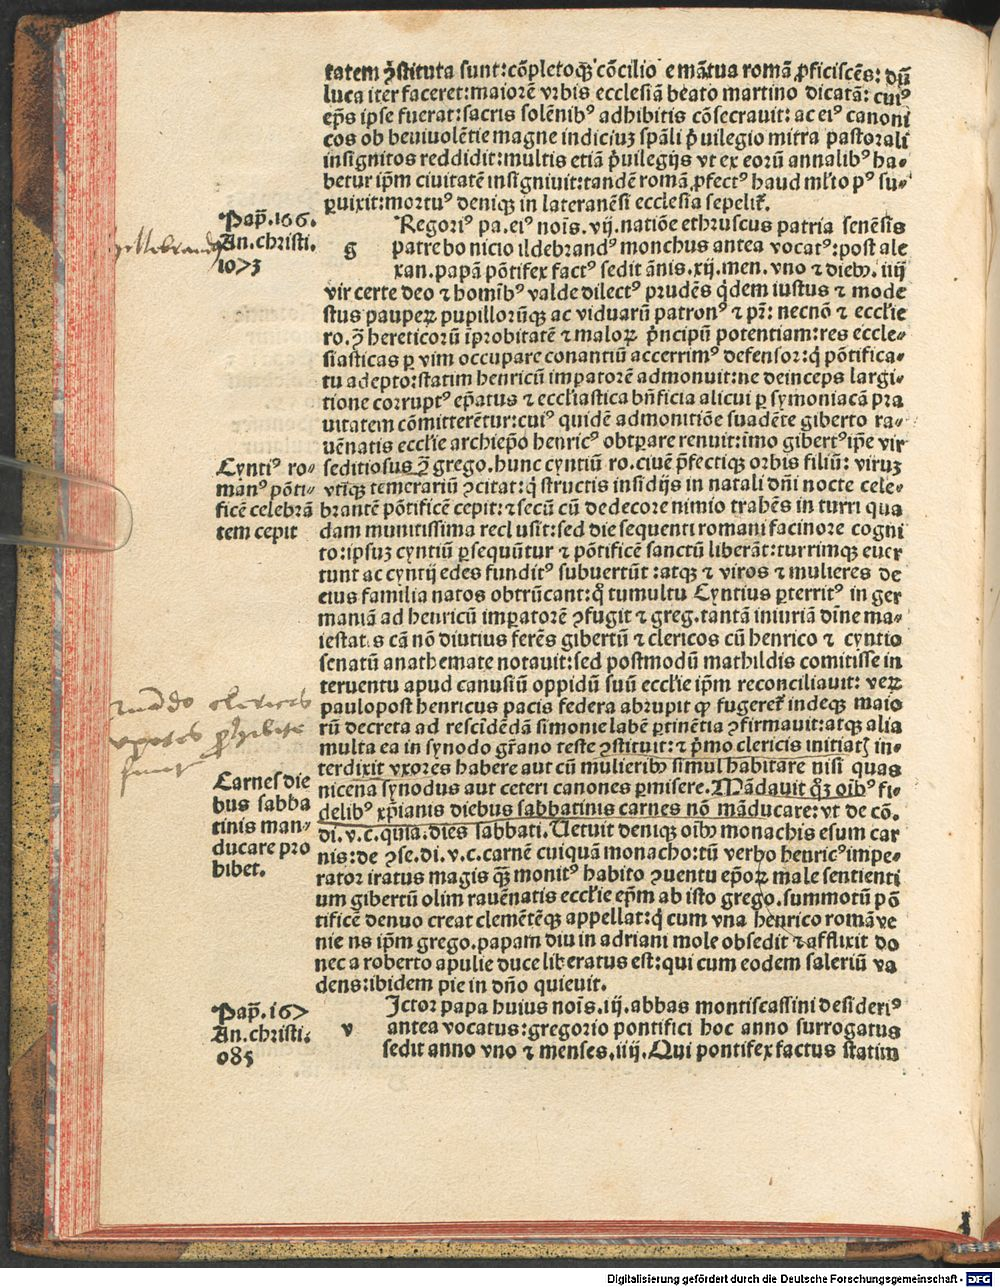 tatem ꝯ̃stituta sunt:cõpletoqꝫ cõcilio e mãtua romã ꝓficiscẽs: dũ
luca iter faceret:maiorẽ vrbis ecclesiã beato martino dicatã: cuiꝰ
ep̃s ipse fuerat:sacris solẽnibꝰ adhibitis cõsecrauit: ac eiꝰ canoni
cos ob beniuolẽtie magne indiciuz sp̃ali p̃uilegio mitra pastorali
insignitos reddidit:multis etiã p̃uilegijs vt ex eorũ annalibꝰ ha-
betur ip̃m ciuitatẽ insigniuit:tandẽ romã ꝓfectꝰ haud ml̃to pꝰ su-
ꝑuixit:mortuꝰ deniqꝫ in lateranẽsi ecclesia sepelit̃.
Pap̃.166.
An.christi.
1073
g
Regoriꝰ pa.eiꝰ noĩs.vij.natiõe ethruscus patria senẽsis
patre bonicio ildebrandꝰ monchus antea vocatꝰ:post ale
xan.papã põtifex factꝰ sedit ãnis.xij.men.vno ⁊ diebꝫ.iiij
vir certe deo ⁊ homĩbꝰ valde dilectꝰ prudẽs q̃dem iustus ⁊ mode
stus pauperꝝ pupillorũqꝫ ac viduarũ patronꝰ ⁊ pr̃: necnõ ⁊ eccl̃ie
ro.ꝯ̃ hereticorũ ĩprobitatẽ ⁊ maloꝝ p̃ncipũ potentiam:res eccle-
siasticas ꝑ vim occupare conantiũ accerrimꝰ defensor:q̃ põtifica-
tu adepto:statim henricũ imꝑatorẽ admonuit:ne deinceps largi-
tione corruptꝰ ep̃atus ⁊ eccl̃iastica bñficia alicui ꝑ symoniacã pra
uitatem cõmitterẽtur:cuiꝰ quidẽ admonitiõe suadẽte giberto ra-
uẽnatis eccl̃ie archiep̃o henricꝰ obtꝑare renuit:ĩmo gibertꝰ ip̃e vir
Cyntiꝰ ro-
manꝰ põti-
ficẽ celebrã
tem cepit
seditiosus ꝯ̃ grego.hunc cyntiũ ro.ciuẽ p̃fectiqꝫ orbis filiũ: viruz
vtiqꝫ temerariũ ꝯcitat:q̃ structis insidijs in natali dñi nocte cele-
brantẽ põtificẽ cepit:⁊ secũ cũ dedecore nimio trahẽs in turri qua
dam munitissima reclusit:sed die sequenti romani facinore cogni
to:ipsuz cyntiũ ꝑsequũtur ⁊ põtificẽ sanctũ liberãt:turrimqꝫ euer
tunt ac cyntij edes funditꝰ subuertũt:atqꝫ ⁊ viros ⁊ mulieres de
eius familia natos obtrũcant:q̃ tumultu Cyntius ꝑterritꝰ in ger
maniã ad henricũ imꝑatorẽ ꝯfugit ⁊ greg.tantã iniuriã dĩne ma-
iestatis cã nõ diutius ferẽs gibertũ ⁊ clericos cũ henrico ⁊ cyntio
senatũ anathemate notauit:sed postmodũ mathildis comitisse in
teruentu apud canusiũ oppidũ suũ eccl̃ie ip̃m reconciliauit: veꝝ
paulopost henricus pacis federa abrupit ꝙ fugeret̃ indeqꝫ maio
rũ decreta ad rescĩdẽdã simonie labẽ ꝑtinẽtia ꝯfirmauit:atqꝫ alia
multa ea in synodo gr̃ano teste ꝯstituit:⁊ p̃mo clericis initiatꝭ in-
terdixit vxores habere aut cũ mulieribꝫ simul habitare nisi quas
Carnes die
bus sabba
tinis man-
ducare pro
hibet.
nicena synodus aut ceteri canones ꝑmisere.Mãdauit qꝫ oĩbꝰ fi-
delibꝰ xp̃ianis diebus sabbatinis carnes nõ mãducare:vt de cõ.
di.v.c.quia.dies sabbati.Uetuit deniqꝫ oĩbꝫ monachis esum car
nis:de ꝯse.di.v.c.carnẽ cuiquã monacho:tũ verbo henricꝰ impe-
rator iratus magis qꝫ monitꝰ habito ꝯuentu ep̃oꝝ male sentienti
um gibertũ olim rauẽnatis eccl̃ie ep̃m ab isto grego.summotũ põ
tificẽ denuo creat clemẽtẽqꝫ appellat:q̃ cum vna henrico romã ve
niens ip̃m grego.papam diu in adriani mole obsedit ⁊ afflixit do
nec a roberto apulie duce liberatus est:qui cum eodem saleriũ va
dens:ibidem pie in dño quieuit.
Pap̃.167
An.christi.
085
v
Ictor papa huius noĩs.iij.abbas montiscassini desideriꝰ
antea vocatus:gregorio pontifici hoc anno surrogatus
sedit anno vno ⁊ menses.iiij.Qui pontifex factus statim
Digitalisierung gefördert durch die Deutsche Forschungsgemeinschaft - DFG